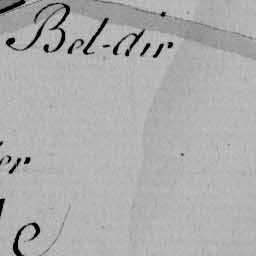 Bel-dir
er
e